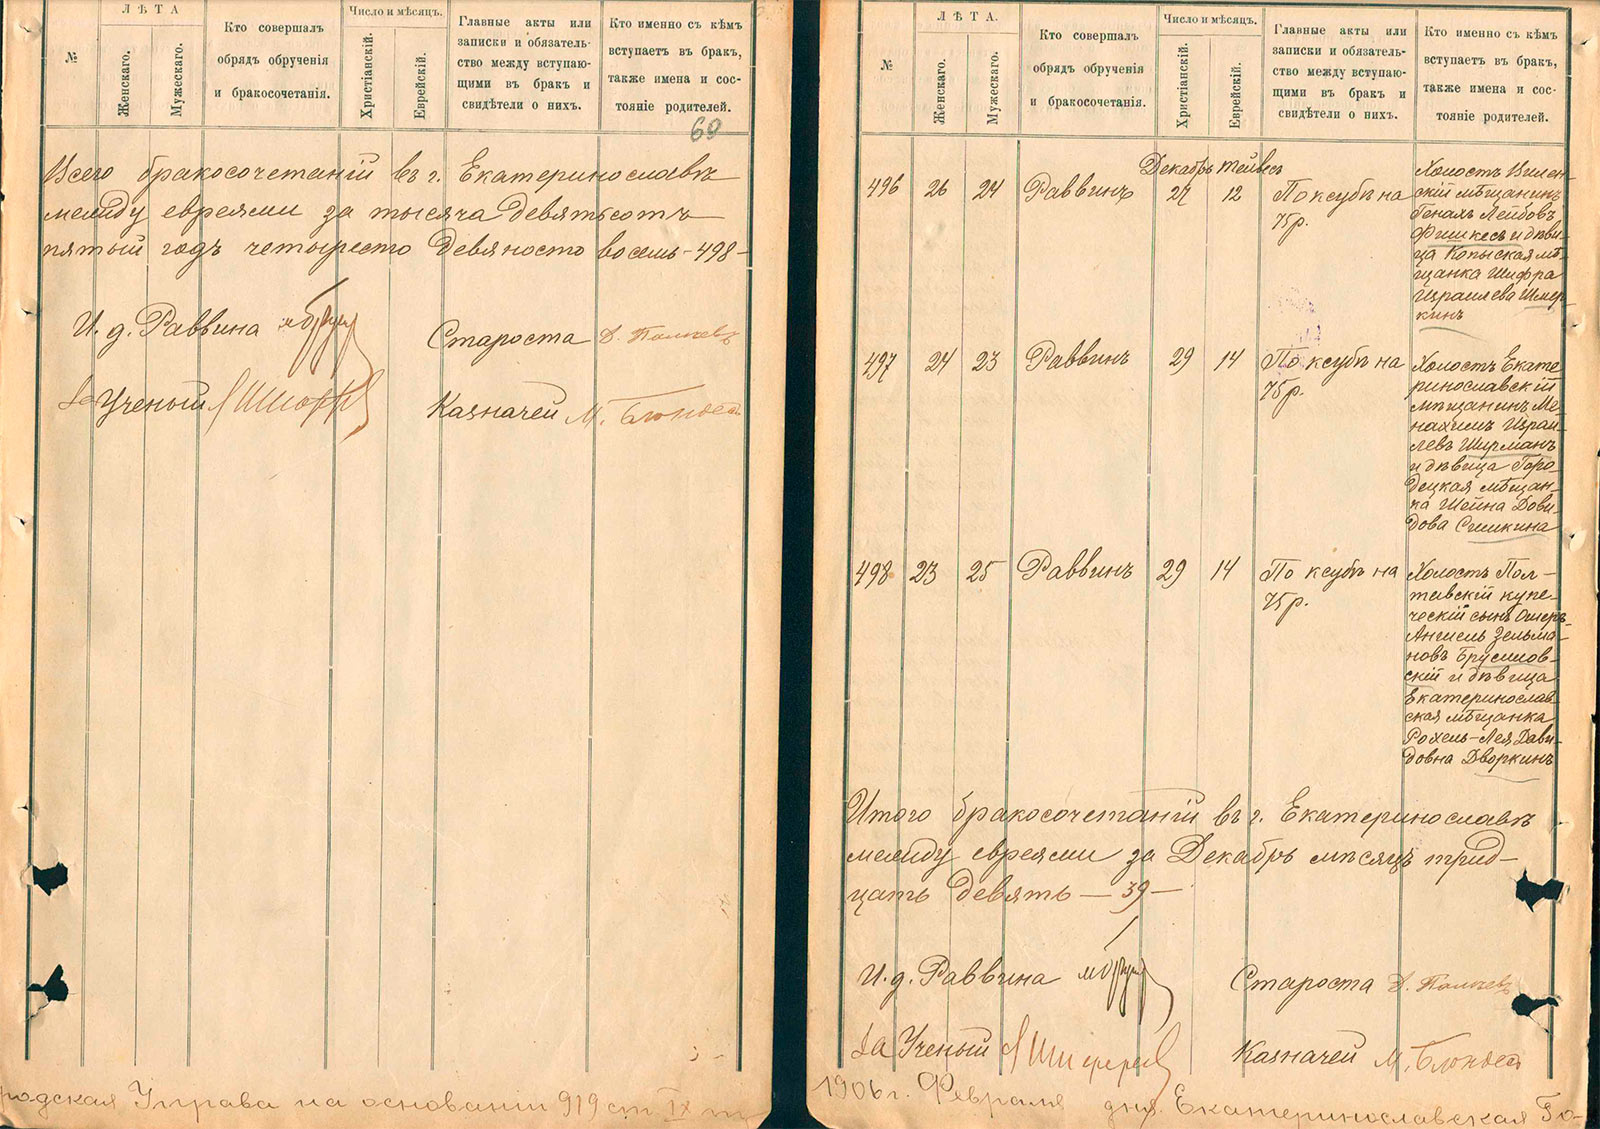 №
ЛѢТА
Женскаго.
Мужескаго.
Кто совершалъ
обрядъ обрученія
и бракосочетанія.
Число и мѣсяцъ.
Христіанскій.
Еврейскій.
Главные акты или
записки и обязатель-
ство между вступаю-
щими въ бракъ и
свидѣтели о нихъ.
Кто именно съ кѣмъ
вступаетъ въ бракъ,
также имена и сос-
тояніе родителей.
69
Всего бракосочетаній въ г. Екатеринославѣ
между евреями за тысяча девятьсотъ
пятый годъ четыреста девяносто восемь - 498 -
И. д. Раввина
Староста
За Ученый
Казначей М. Блондесъ
родская Управа на основаніи 919 ст IX т
№
ЛѢТА.
Женскаго.
Мужескаго.
Кто совершалъ
обрядъ обрученія
и бракосочетанія.
Число и мѣсяцъ.
Христіанскій.
Еврейскій.
Главные акты или
записки и обязатель-
ство между вступаю-
щими въ бракъ и
свидѣтели о нихъ.
Кто именно съ кѣмъ
вступаетъ въ бракъ,
также имена и сос-
тояніе родителей.
Декабрь Тейвесъ
496 26 24 Раввинъ 27 12 По ксубѣ на
75р.
Холостъ Вилен-
скій мѣщанинъ
Генахъ Лейбовъ
Фишкесъ и дѣви-
ца Копыская мѣ-
щанка Шифра
Израилева Шмер-
кинъ
497 24 23 Раввинъ 29 14 По ксубѣ на
75р.
Холостъ Екате-
ринославскій
мѣщанинъ Ме-
нахимъ Израи-
левъ Ширманъ
и дѣвица Горо-
децкая мѣщан-
ка Шейна Дови-
дова Симкина
498 23 25 Раввинъ 29 14 По ксубѣ на
75р.
Холостъ Пол-
тавскій купе-
ческій сынъ Ошеръ-
Аншель Зельма-
новъ Брусилов-
скій и дѣвица
Екатеринослав-
ская мѣщанка
Рохель-Лея Дави-
довна Дворкинъ
Итого бракосочетаній въ г. Екатеринославѣ
между евреями за Декабрь мѣсяцъ трид-
цать девять - 39 -
И. д. Раввина
Староста
За Ученый
Казначей М. Блондесъ
1906 г. Февраля дня. Екатеринославская Го-